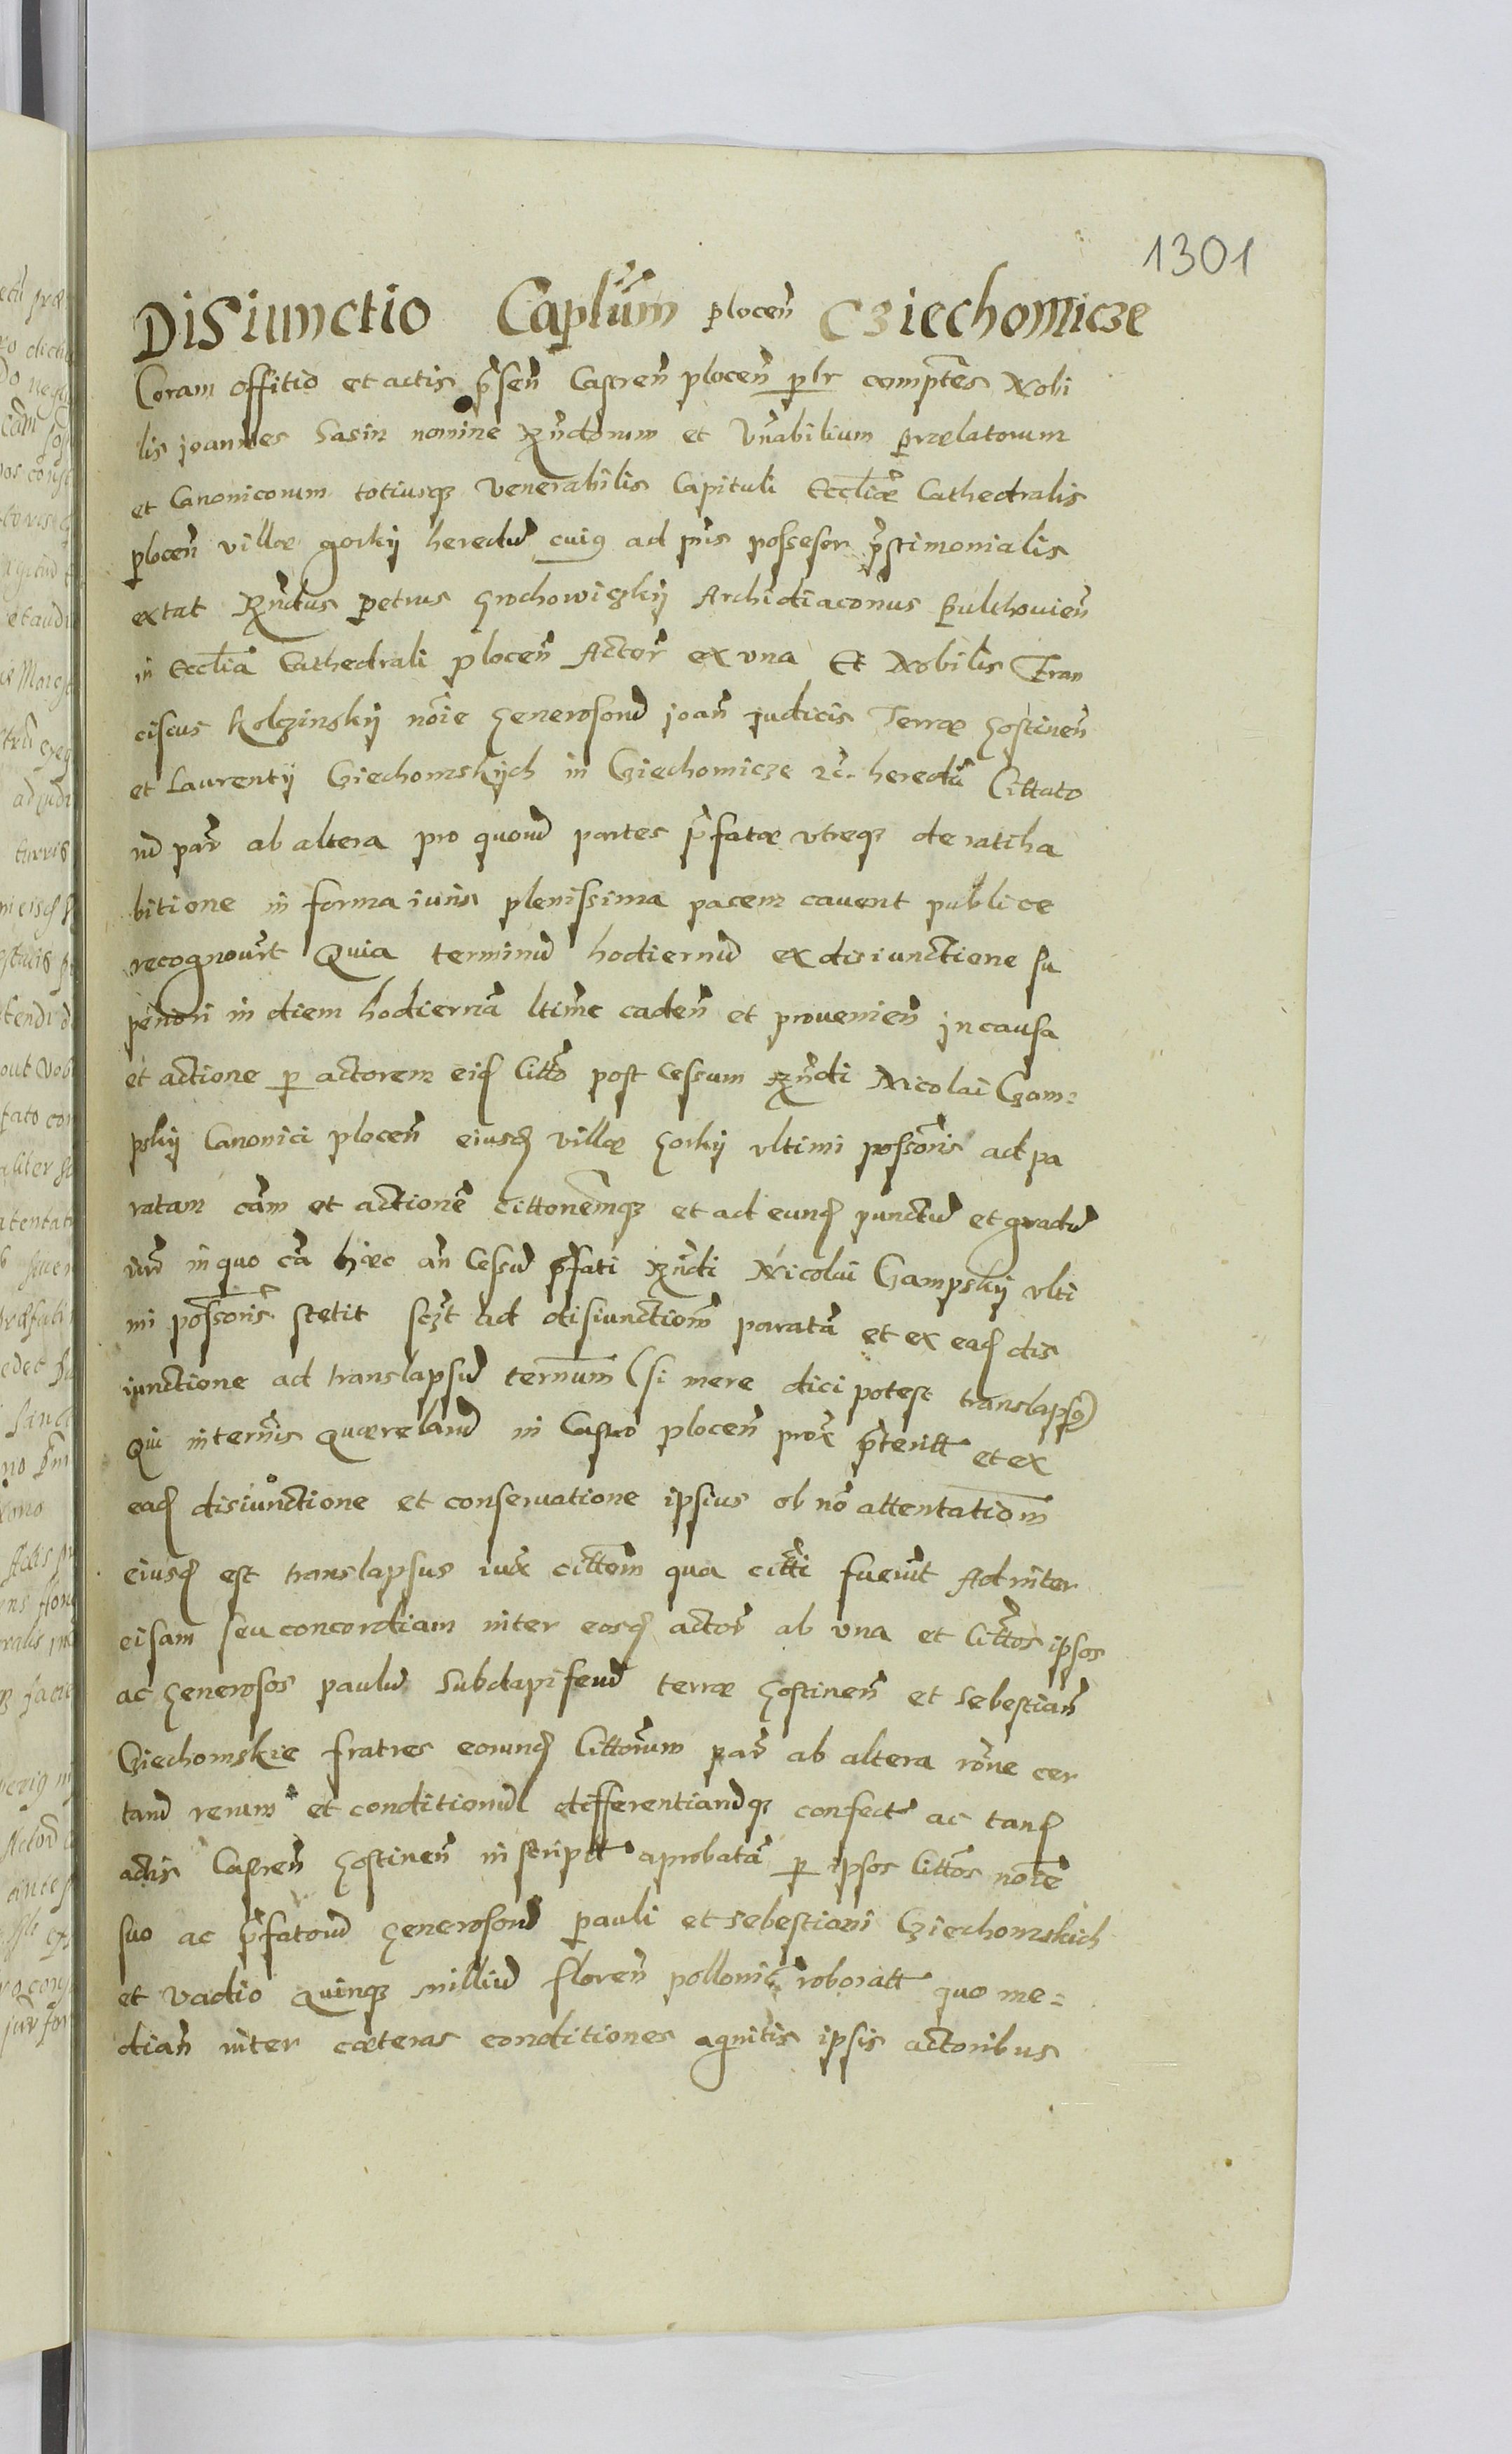 1301
Disiunctio Caplum plocen̄ Cziechomicze
Coram offitio et actis p̄sen̄ Castren̄ plocen̄ plr compten̄s Nobi
lis joannes Sasin nomine Rn̄dorum et Vn̄abilium prælatorum
et Canonicorum totiusqȝ Venerabilis Capituli Eccl̄iæ Cathedralis
plocen̄ villæ gorkij heredū cuiꝰ ad pn̄s possesor p̄stimonialis
extat Rn̄dus petrus Grochowiczkij Archidiaconus Pulthouien̄
in Eccl̄ia Cathedrali plocen̄ Actor̄ ex vna Et Nobilis Fran
ciscus Kolczinskij nōie Generosorū joan̄ judicis Terræ Gostinen̄
et Laurentij Cziechomskijch in Cziechomicze etc. heredū Cittato
rū par̄ ab altera pro quorū partes p̄fatæ vtreqȝ de ratiha
bitione in forma iuris plenissima pacem cauent publice
recognouert̄ Quia terminū hodiernū ex disiunctione su
periori in diem hodiernā ltime caden̄ et prouenien̄ in causa
et actione p actorem eisd̄ citto post Cessum Rn̄di Nicolai Gam=
pskij Canonici plocen̄ eiusd̄ villæ Gorkij vltimi possoris ad pa
ratam cām et actionē cittonemqȝ et ad eund̄ punctū et gradū
iur̄ in quo cā hæc an̄ Cessū p̄fati Rn̄di Nicolai Gampskij vlti
mi possoris stetit sczt ad disiunctiom̄ paratā et ex ead̄ dis
iunctione ad translapsū termum (si mere dici potest translapsꝰ)
Qui in termis quærelarū in Castro plocen̄ prox p̄teritt et ex
ead̄ disiunctione et conseruatione ipsius ob nō attentatiom̄
eiusd̄ est translapsus iux cittom̄ qua citti fuerūt Ad inter
cisam seu concordiam inter eosd̄ actor̄ ab vna et Cittos ipsos
ac Generosos paulū Subdapiferū terræ Gostinen̄ et Sebestian̄
Cziechomskie fratres eorund̄ Cittorum par̄ ab altera rōne cer
tarū rerum et conditionū differentiarūqȝ confect̄ ac tand̄
actis Castren̄ Gostinen̄ in scriptt aprobatā p ipsos Cittos nōie
suo ac p̄fatorū Generosorū pauli et Sebestiani Cziechomskich
et vadio Quinqȝ milliū floren̄ pollonic̄ roboratt quo me=
dian̄ inter cæteras conditiones agnitis ipsis actoribus